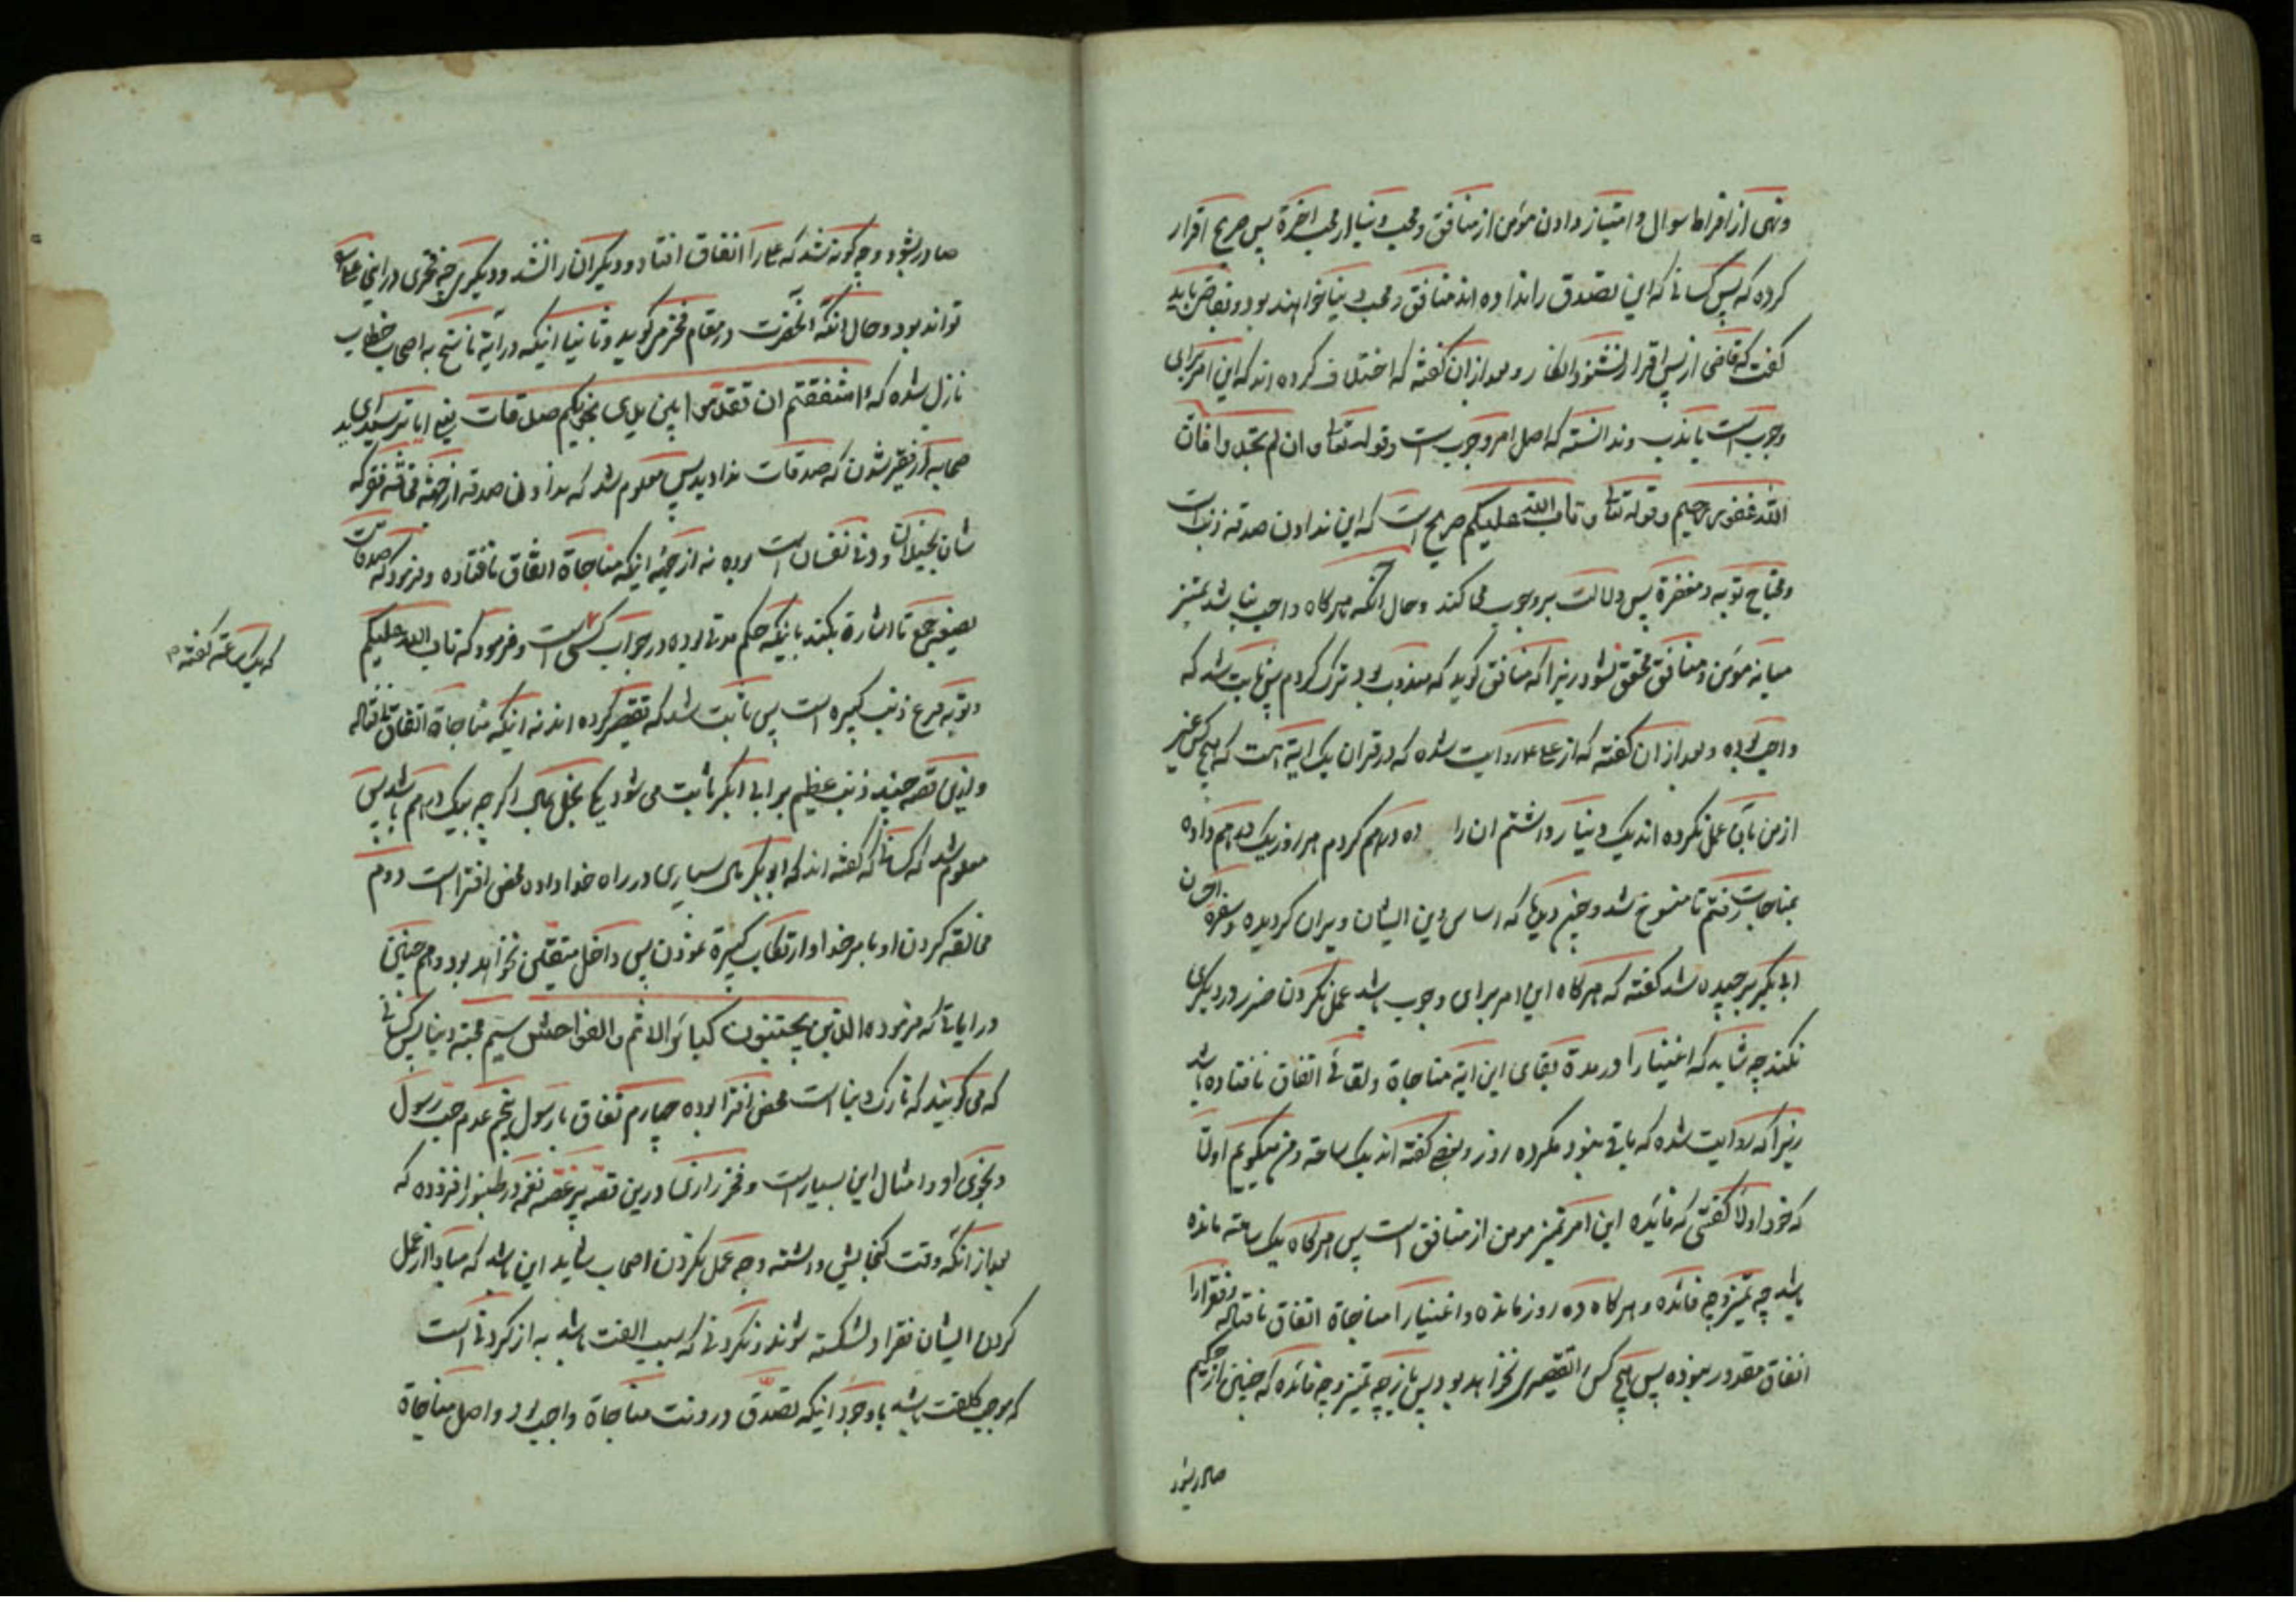 ونهی از افراط سوال و امتیاز دادن مؤمن از منافق و محب دنیا از محب اخرة پس صریح اقرار
کرده که پس کسانی که این تصدق را نداده اند منافق و محب دنیا خواهند بود و بقاضی باید
گفت که قاضی از پس اقرار نشنود انکار و بعد از آن گفته که اختلاف کرده اند که این امر برای
وجوب است یا ندب و ندانسته که اصل امر وجوب است وقوله تعا و ان لم تجدوا فان
الله غفور رحیم وقوله تعا و تاب الله علیکم صریح است که این ندادن صدقه ذنب است
ومحتاج توبه و مغفرة پس دلالت بر وجوب می کند وحال آنکه هرگاه واجب نباشد تمیز
میانه مؤمن و منافق محقق نشود زیرا که منافق کوید که مندوب بود ترک کردم پس ثابت شد که
واجب بوده وبعد از ان گفته که از علی ع روایت شده که در قران یک ایة است که هیچ کس غیر
از من بآن عمل نکرده اند یک دینار داشتم ان را ده درهم کردم هر روز یک درهم داده
بمناجات رفتم تا منسوخ شد و چون دید که اساس دین ایشان ویران کردیده و سفره احسان
ابی بکر برچیده شد گفته که هرگاه این امر برای وجوب باشد عمل نکردن ضرر در دیگری
نکند چه شاید که اغنیا را در مدة بقای این ایة مناجاة ولقائی اتفاق نافتاده باشد
زیرا که روایت شده که باقی نبود مکر ده روز و بعضی گفته اند یک ساعة ومن میکویم اولا
که خود اولا گفتی که فائده این امر تمیز مومن از منافق است پس هرگاه یک ساعة مانده
باشد چه تمیز و چه فائده و هرگاه ده روز مانده و اغنیا را مناجاة اتفاق نافتاده وفقرا را
انفاق مقدور نبوده پس هیچ کس را تقصیری نخواهد بود پس باز چه تمیز و چه فائده که چنین از حکیم
صادر شود
صادر بشود و چه کونه شد که علی را اتفاق افتاد و دیگران را نشد و دیگری چه فخری در این علی را
تواند بود و حال آنکه آنحضرت در مقام فخر می کوید و ثانیا اینکه در آیة ناسخ به اصحاب خطاب
نازل شده که ءاشفقتم ان تقدموا بین یدی نجویکم صدقات یعنی ایا ترسیدید ای
صحابه از فقیر شدن که صدقات ندادید پس معلوم شد که ندادن صدقه از جهة مخافة فقر که
شان بخیلان و دنی نفسان است بوده نه از جهة اینکه مناجاة اتفاق نافتاده و فرمود که صدقات
بصیغه جمع تا اشارة بکند باینکه حکم مدتی بوده در جواب کسی است و فرمود که تاب الله علیکم
که یک ساعة گفته
وتوبه فرع ذنب کبیره است پس ثابت شد که تقصیر کرده اند نه اینکه مناجاة اتفاق نافتاده
و از این قصه چند ذنب عظیم بر ابی بکر ثابت می شود یکی بخل بمال اکر چه بیک درهم باشد پس
معلوم شد که کسانی که گفته اند که ابو بکر مال بسیاری در راه خدا داده محض افترا است دوم
مخالفة کردن او با مر خدا و ارتکاب کبیرة نمودن پس داخل متقین نخواهد بود و هم چنین
در ایاتی که فرموده الذین یجتنبون کبائر الاثم والفواحش سیم محبة دنیا پس کسانی
که می کویند که تارک دنیا است محض افترا بوده چهارم نفاق با رسول پنجم عدم حب رسول
و نجوی او و امثال این بسیار است و فخر رازی در این قصه پر غصه نغمه در طنبور افزوده که
بعد از آنکه وقت کنجایش داشته وجه عمل نکردن اصحاب شاید این باشد که مبادا از عمل
کردن ایشان فقرا دلشکسته شوند و نکردنی که سبب الفت باشد به از کردنی است
که موجب کلفت باشد با وجود اینکه تصدق در وقت مناجاة واجب بود و اصل مناجاة